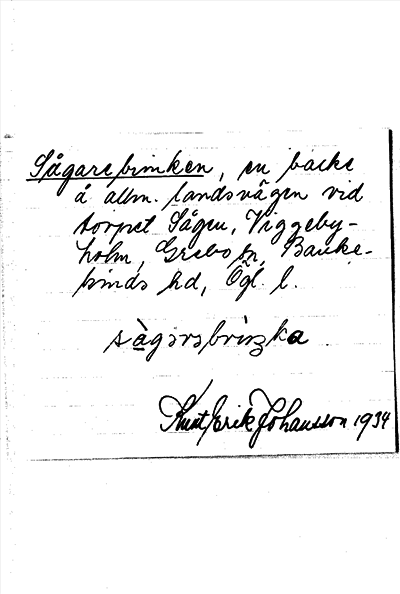 Sågarebrinken, en backe
å allm. landsvägen vid
torpet Sågen, Viggeby-
holm, Grebo sn, Banke-
kinds hd, Ögl. l.
Knut Erik Johansson 1934